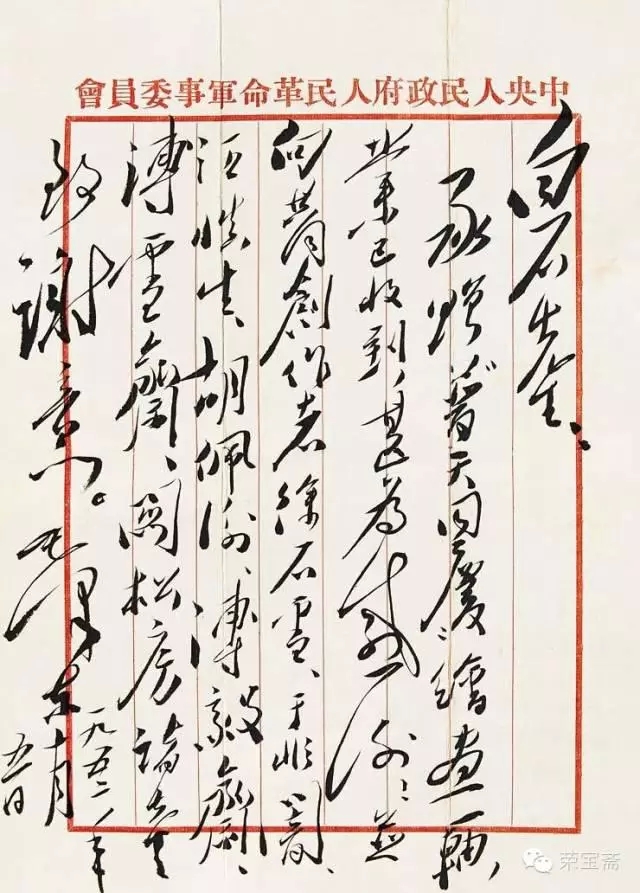 中央人民政府人民革命軍事委員會
白石先生：
承贈普天同慶繪畫一軸，
業已收到，甚為感謝！並
向共同創作者徐石雪、于非闇、
汪慎生、胡佩衡、溥毅齋、
溥雪齋、關松房諸先生
致謝意。毛澤東
一九五二年
十月
五日
荣宝斋